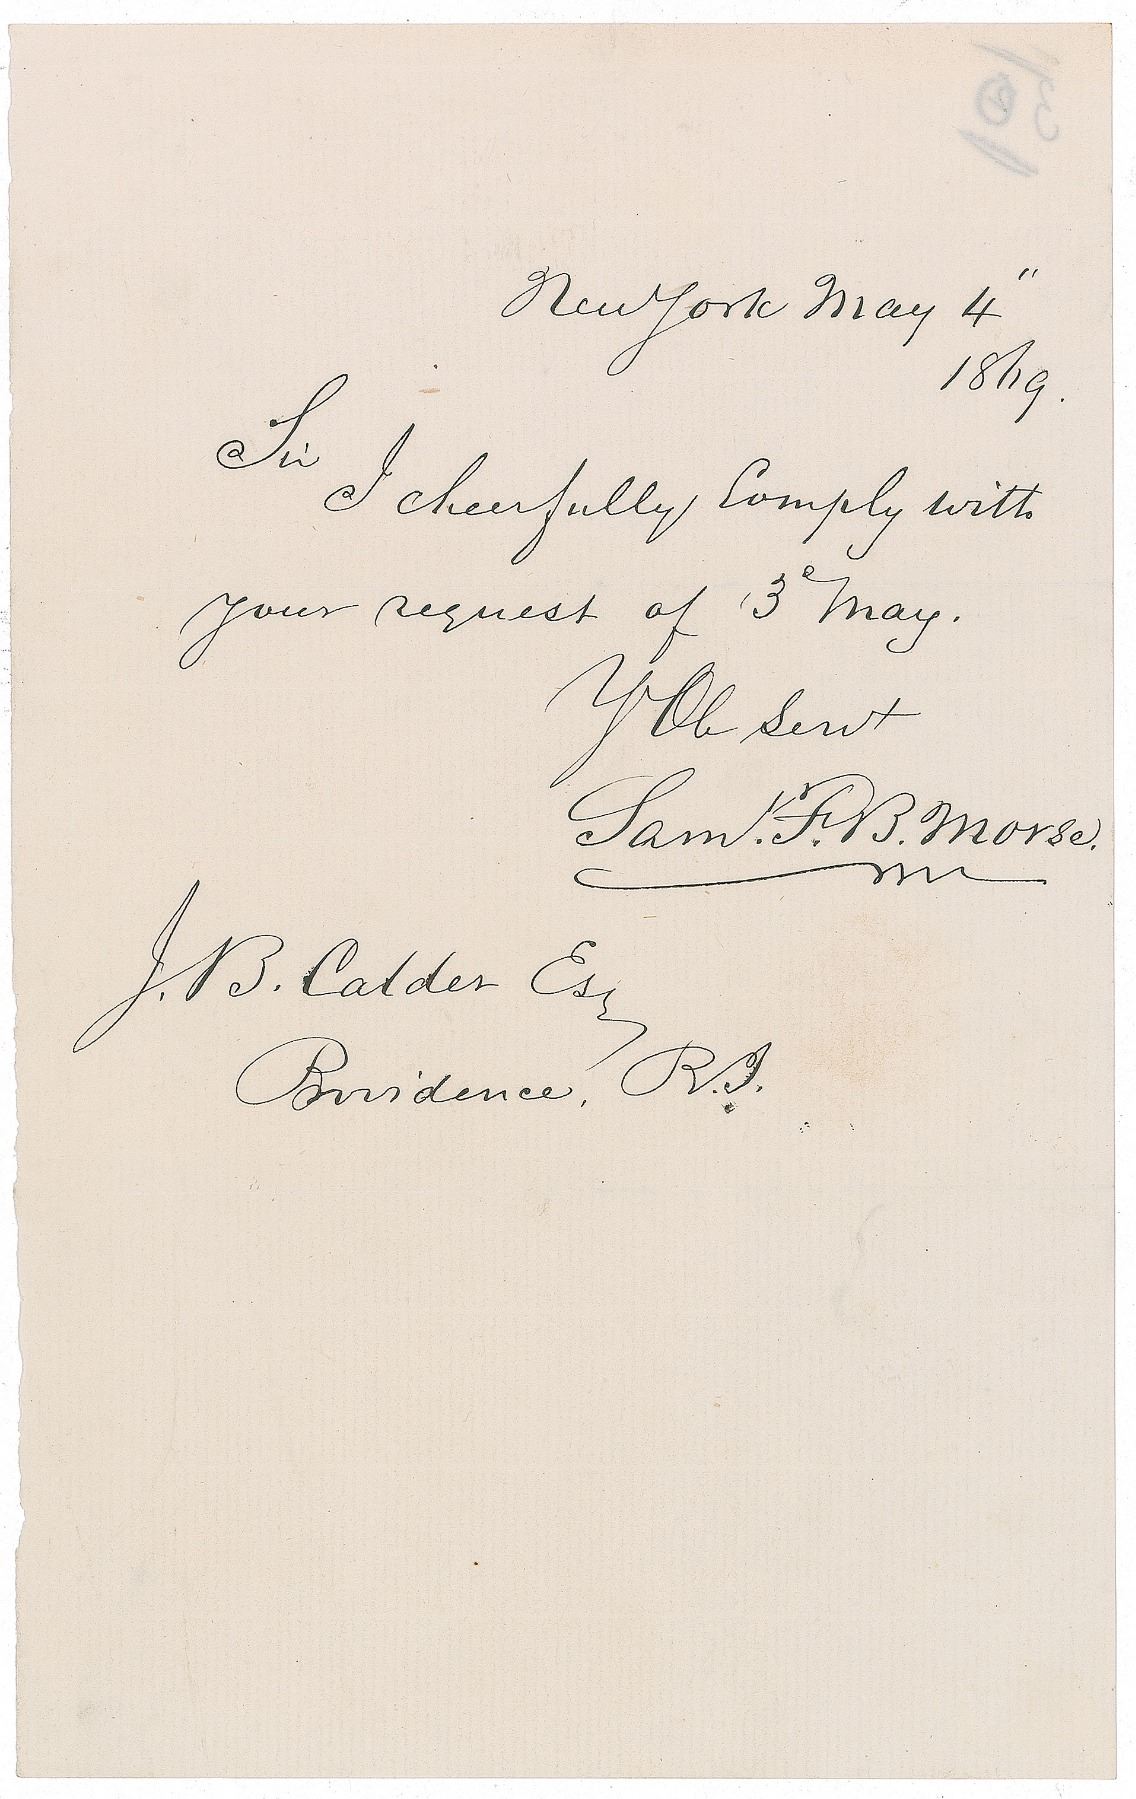 New York May 4"
1869.
Sir
I cheerfully Comply with
your request of 3d May.
Yr Ob Servt
Saml. F. B. Morse.
J. B. Calder Esq
Providence, R.I.